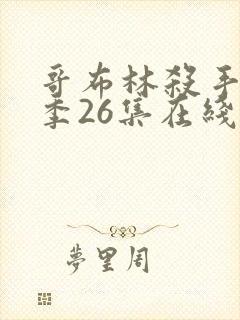 哥布林殺手
季26集在綫
夢里周